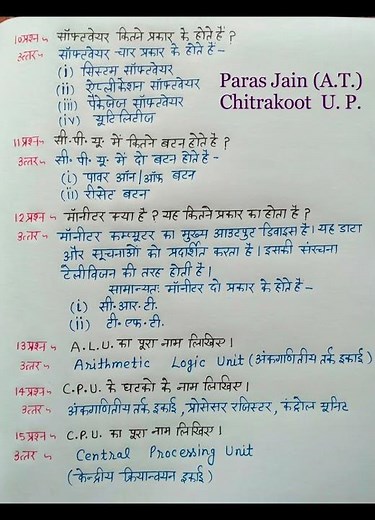 10 प्रश्न → सॉफ्टवेयर कितने प्रकार के होते हैं ?
उत्तर → सॉफ्टवेयर चार प्रकार के होते हैं -
(i) सिस्टम सॉफ्टवेयर
(ii) ऐप्लीकेशन सॉफ्टवेयर
(iii) पैकेजेज सॉफ्टवेयर
(iv) यूटिलिटीज
Paras Jain (A.T.)
Chitrakoot U. P.
11 प्रश्न → सी. पी. यू. में कितने बटन होते हैं ?
उत्तर → सी. पी. यू. में दो बटन होते हैं -
(i) पावर ऑन/ऑफ बटन
(ii) रीसेट बटन
12 प्रश्न → मॉनीटर क्या है ? यह कितने प्रकार का होता है ?
उत्तर → मॉनीटर कम्प्यूटर का मुख्य आउटपुट डिवाइस है। यह डाटा
और सूचनाओं को प्रदर्शित करता है। इसकी संरचना
टेलीविजन की तरह होती है।
सामान्यतः मॉनीटर दो प्रकार के होते हैं -
(i) सी. आर. टी.
(ii) टी. एफ. टी.
13 प्रश्न → A.L.U. का पूरा नाम लिखिए।
उत्तर → Arithmetic Logic Unit (अंकगणितीय तर्क इकाई)
14 प्रश्न → C.P.U. के घटकों के नाम लिखिए।
उत्तर → अंकगणितीय तर्क इकाई, प्रोसेसर रजिस्टर, कंट्रोल यूनिट
15 प्रश्न → C.P.U. का पूरा नाम लिखिए।
उत्तर → Central Processing Unit
(केन्द्रीय क्रियान्वयन इकाई)